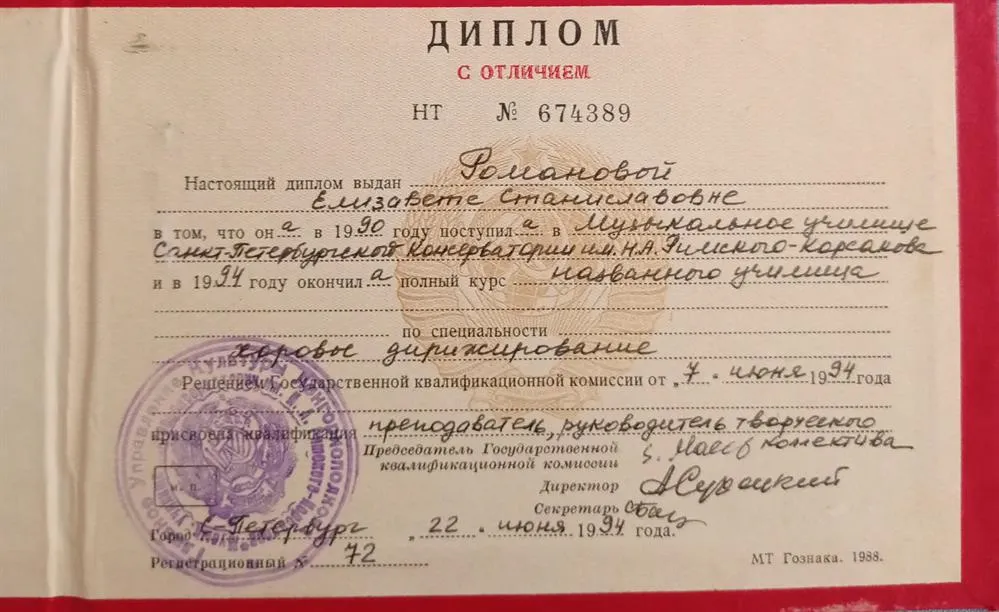 ДИПЛОМ
С ОТЛИЧИЕМ
НТ № 674389
Настоящий диплом выдан Романовой
Елизавете Станиславовне
в том, что она в 1990 году поступила в Музыкальное училище
Санкт-Петербургской Консерватории им. Н.А. Римского-Корсакова
и в 1994 году окончила полный курс названного училища
по специальности
хоровое дирижирование
Решением Государственной квалификационной комиссии от „7" июня 1994 года
присвоена квалификация преподаватель, руководитель творческого
Председатель Государственной коллектива
квалификационной комиссии
Директор
Секретарь
М. П.
Город С-Петербург „22" июня 1994 года.
Регистрационный № 72
МТ Гознака. 1988.